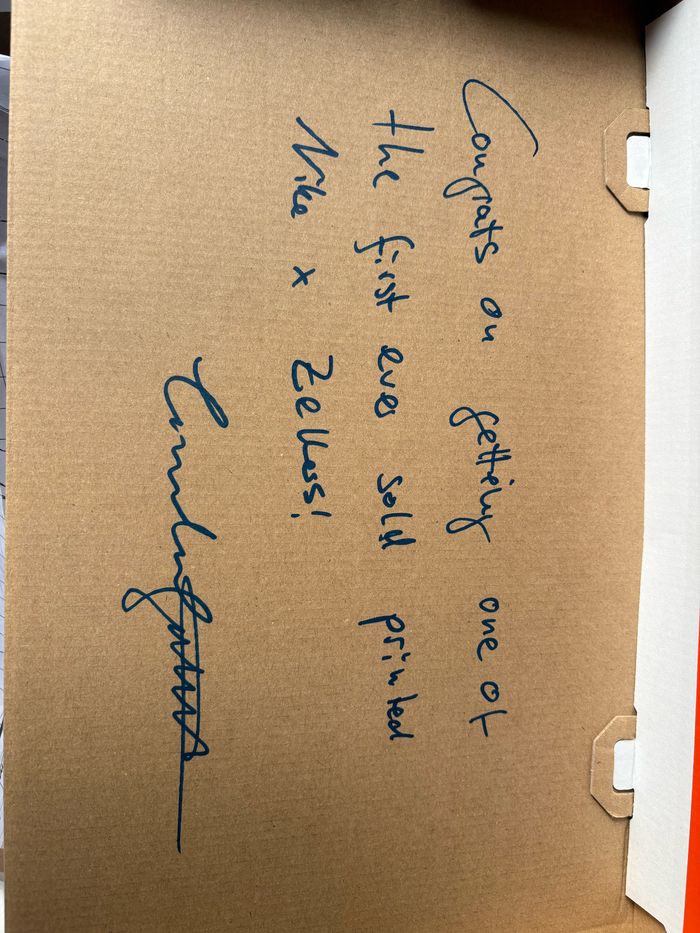 Congrats on getting one of
the first ever sold printed
Nike x Zellers!